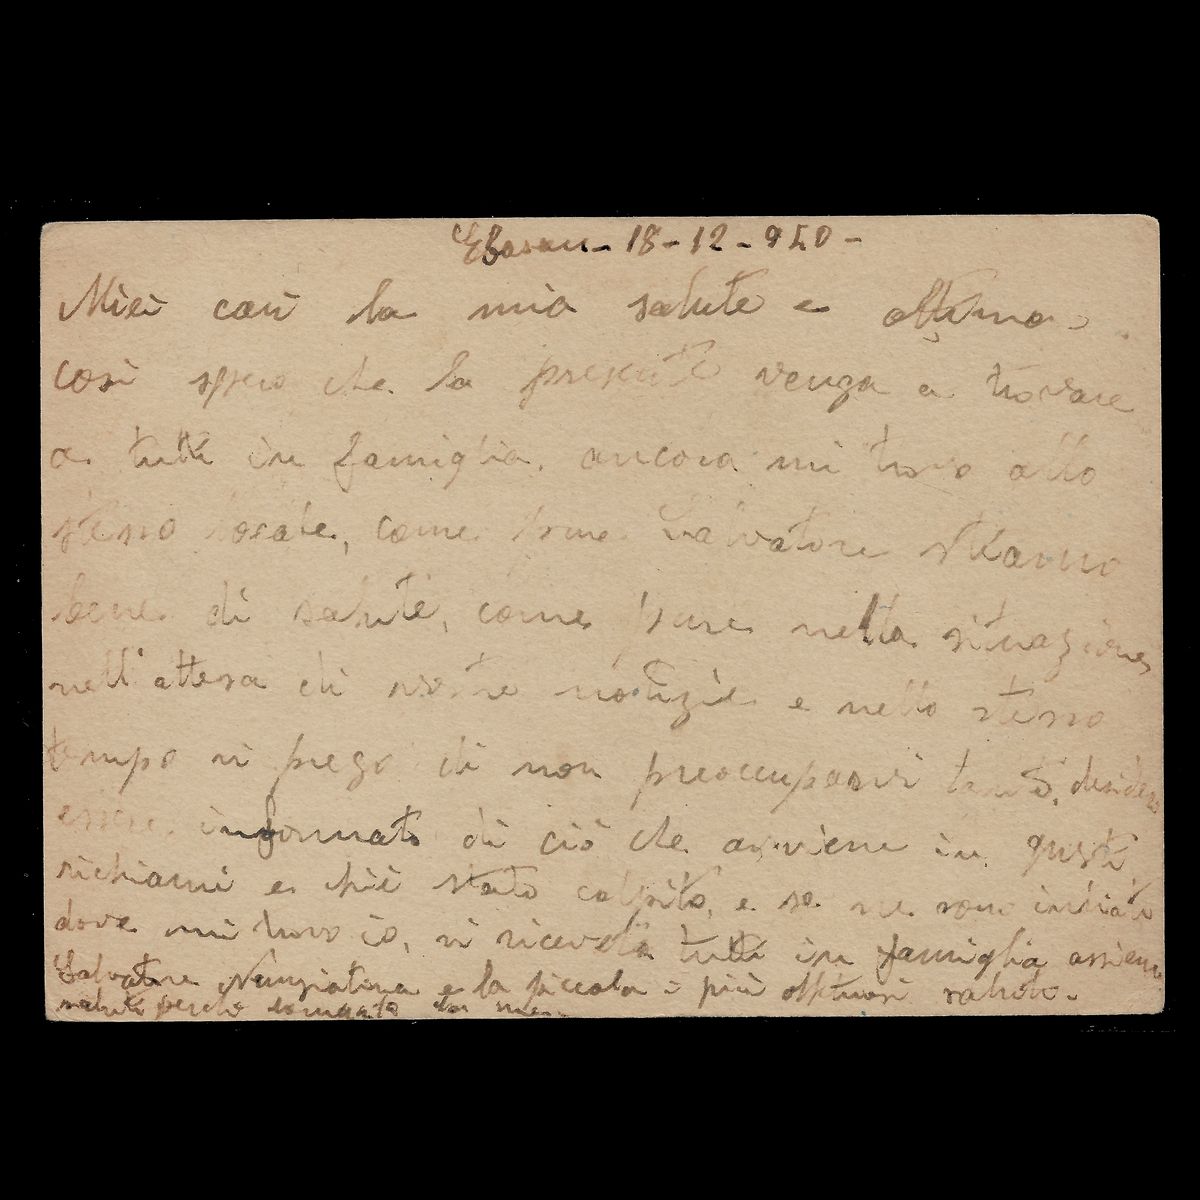 Elbasan - 18 - 12 - 940 -
Miei cari la mia salute e ottima
così spero che la presente venga a trovare
a tutti in famiglia. ancora mi trovo allo
stesso locale, come pure Salvatore stiamo
bene di salute, come pure nella situazione
nell'attesa di vostre notizie e nello stesso
tempo vi prego di non preoccuparvi tanto, desidero
essere informato di ciò che avviene in questi
richiami e chi è stato colpito, e se ne sono inviati
dove mi trovo io, vi riceveta tutti in famiglia assieme
Salvatore Nunziatina e la piccola i più affettuosi saluti -
saluti da me.